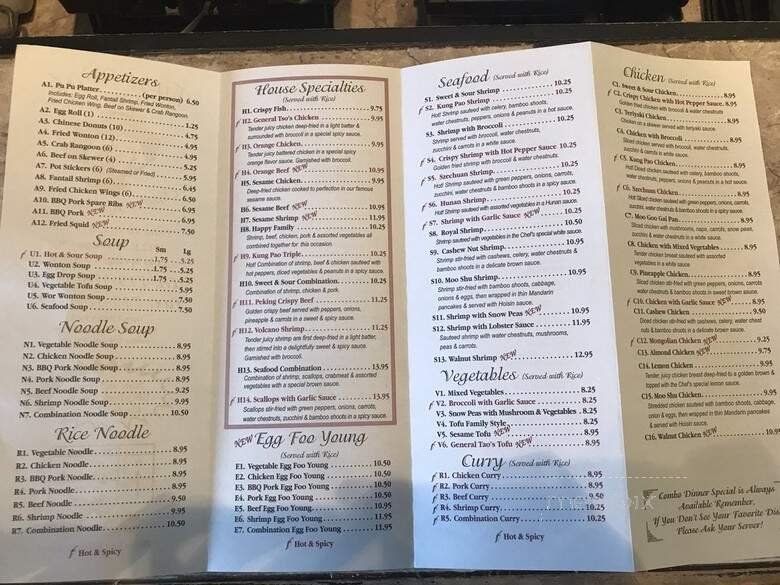 Appetizers
A1. Pu Pu Platter
(per person) 6.50
Includes: Egg Roll, Fantail Shrimp, Fried Wonton,
Fried Chicken Wing, Beef on Skewer & Crab Rangoon.
A2. Egg Roll (1) 1.25
A3. Chinese Donuts (10) 4.75
A4. Fried Wonton (12) 4.95
A5. Crab Rangoon (6) 4.95
A6. Beef on Skewer (4) 5.25
A7. Pot Stickers (6) (Steamed or Fried) 5.95
A8. Fantail Shrimp (6) 6.45
A9. Fried Chicken Wings (6) 5.50
A10. BBQ Pork Spare Ribs NEW
A11. BBQ Pork NEW
A12. Fried Squid NEW 7.95
Soup
Sm Lg
U1. Hot & Sour Soup 1.75 5.25
U2. Wonton Soup 1.75 5.25
U3. Egg Drop Soup 1.75 5.25
U4. Vegetable Tofu Soup 5.95
U5. Wor Wonton Soup 7.50
U6. Seafood Soup 7.50
Noodle Soup
N1. Vegetable Noodle Soup 8.95
N2. Chicken Noodle Soup 8.95
N3. BBQ Pork Noodle Soup 8.95
N4. Pork Noodle Soup 8.95
N5. Beef Noodle Soup 9.25
N6. Shrimp Noodle Soup 9.95
N7. Combination Noodle Soup 10.50
Rice Noodle
R1. Vegetable Noodle 8.95
R2. Chicken Noodle 8.95
R3. BBQ Pork Noodle 8.95
R4. Pork Noodle 8.95
R5. Beef Noodle 9.50
R6. Shrimp Noodle 9.95
R7. Combination Noodle 10.50
Hot & Spicy
House Specialties
(Served with Rice)
H1. Crispy Fish 9.75
H2. General Tso's Chicken 9.95
Tender juicy chicken deep-fried in a light batter &
surrounded with broccoli in a special spicy sauce.
H3. Orange Chicken 9.95
Tender juicy battered chicken in a special spicy
orange flavor sauce. Garnished with broccoli.
H4. Orange Beef NEW 10.95
H5. Sesame Chicken 9.95
Deep-fried chicken cooked to perfection in our famous
sesame sauce.
H6. Sesame Beef NEW 10.95
H7. Sesame Shrimp NEW 11.95
H8. Happy Family 10.25
Shrimp, beef, chicken, pork & assorted vegetables all
combined together for this occasion.
H9. Kung Pao Triple 10.25
Hot! Combination of shrimp, beef & chicken sauteed with
hot peppers, diced vegetables & peanuts in a spicy sauce.
H10. Sweet & Sour Combination 10.25
Combination of shrimp, chicken & pork.
H11. Peking Crispy Beef 10.25
Golden crispy beef served with peppers, onions,
pineapple & carrots in a sweet & spicy sauce.
H12. Volcano Shrimp 11.25
Tender juicy shrimp are first deep-fried in a light batter,
then stirred into a delightfully sweet & spicy sauce.
Garnished with broccoli.
H13. Seafood Combination 13.95
Combination of shrimp, scallops, crabmeat & assorted
vegetables with a special brown sauce.
H14. Scallops with Garlic Sauce 13.95
Scallops stir-fried with green peppers, onions, carrots,
water chestnuts, zucchini & bamboo shoots in a spicy sauce.
NEW Egg Foo Young
(Served with Rice)
E1. Vegetable Egg Foo Young 10.50
E2. Chicken Egg Foo Young 10.50
E3. BBQ Pork Egg Foo Young 10.50
E4. Pork Egg Foo Young 10.50
E5. Beef Egg Foo Young 10.95
E6. Shrimp Egg Foo Young 11.95
E7. Combination Egg Foo Young 11.95
Hot & Spicy
Seafood (Served with Rice)
S1. Sweet & Sour Shrimp 10.25
S2. Kung Pao Shrimp 10.25
Hot! Shrimp sauteed with celery, bamboo shoots,
water chestnuts, peppers, onions & peanuts in a hot sauce.
S3. Shrimp with Broccoli 10.25
Shrimp served with broccoli, water chestnuts,
zucchini & carrots in a white sauce.
S4. Crispy Shrimp with Hot Pepper Sauce 10.25
Golden fried shrimp with broccoli & water chestnuts.
S5. Szechuan Shrimp 10.25
Hot! Shrimp sauteed with green peppers, onions, carrots,
zucchini, water chestnuts & bamboo shoots in a spicy sauce.
S6. Hunan Shrimp 10.25
Hot! Shrimp sauteed with assorted vegetables in a Hunan sauce.
S7. Shrimp with Garlic Sauce NEW 10.25
S8. Royal Shrimp 10.50
Shrimp sauteed with vegetables in the Chef's special white sauce.
S9. Cashew Nut Shrimp 10.50
Shrimp stir-fried with cashews, celery, water chestnuts &
bamboo shoots in a delicate brown sauce.
S10. Moo Shu Shrimp 10.50
Shrimp stir-fried with bamboo shoots, cabbage,
onions & eggs, then wrapped in thin Mandarin
pancakes & served with Hoisin sauce.
S11. Shrimp with Snow Peas NEW 10.95
S12. Shrimp with Lobster Sauce 11.95
Sauteed shrimp with water chestnuts, mushrooms,
peas & carrots.
S13. Walnut Shrimp NEW 12.95
Vegetables (Served with Rice)
V1. Mixed Vegetables 8.25
V2. Broccoli with Garlic Sauce 8.25
V3. Snow Peas with Mushroom & Vegetables 8.25
V4. Tofu Family Style 8.25
V5. Sesame Tofu NEW 8.95
V6. General Tao's Tofu NEW 8.95
Curry (Served with Rice)
R1. Chicken Curry 8.95
R2. Pork Curry 8.95
R3. Beef Curry 9.50
R4. Shrimp Curry 10.25
R5. Combination Curry 10.25
Hot & Spicy
Chicken (Served with Rice)
C1. Sweet & Sour Chicken
C2. Crispy Chicken with Hot Pepper Sauce 8.95
Golden fried chicken with broccoli & water chestnuts
C3. Teriyaki Chicken
Chicken on a skewer served with teriyaki sauce.
C4. Chicken with Broccoli
Sliced chicken served with broccoli, water chestnuts,
zucchini & carrots in a white sauce.
C5. Kung Pao Chicken
Hot! Diced chicken sauteed with celery, bamboo shoots,
water chestnuts, peppers, onions & peanuts in a hot sauce.
C6. Szechuan Chicken
Hot! Sliced chicken sauteed with green peppers, onions, carrots,
zucchini, water chestnuts & bamboo shoots in a spicy sauce.
C7. Moo Goo Gai Pan
Sliced chicken with mushrooms, napa, carrots, snow peas,
zucchini & water chestnuts in a white sauce.
C8. Chicken with Mixed Vegetables 8.95
Tender chicken breast sauteed with assorted
vegetables in a white sauce.
C9. Pineapple Chicken
Sliced chicken stir-fried with green peppers, onions, carrots,
water chestnuts & bamboo shoots in sweet brown sauce.
C10. Chicken with Garlic Sauce NEW
C11. Cashew Chicken 9.50
Diced chicken stir-fried with cashews, celery, water chest
nuts & bamboo shoots in a delicate brown sauce.
C12. Mongolian Chicken NEW 9.25
C13. Almond Chicken 9.75
C14. Lemon Chicken 9.95
Tender, juicy chicken breast deep-fried to a golden brown &
topped with the Chef's special lemon sauce.
C15. Moo Shu Chicken 9.95
Shredded chicken sauteed with bamboo shoots, cabbage,
onion & eggs, then wrapped in thin Mandarin pancakes
& served with Hoisin sauce.
C16. Walnut Chicken NEW
Combo Dinner Special is Always
Available Remember,
If You Don't See Your Favorite Dish
Please Ask Your Server!